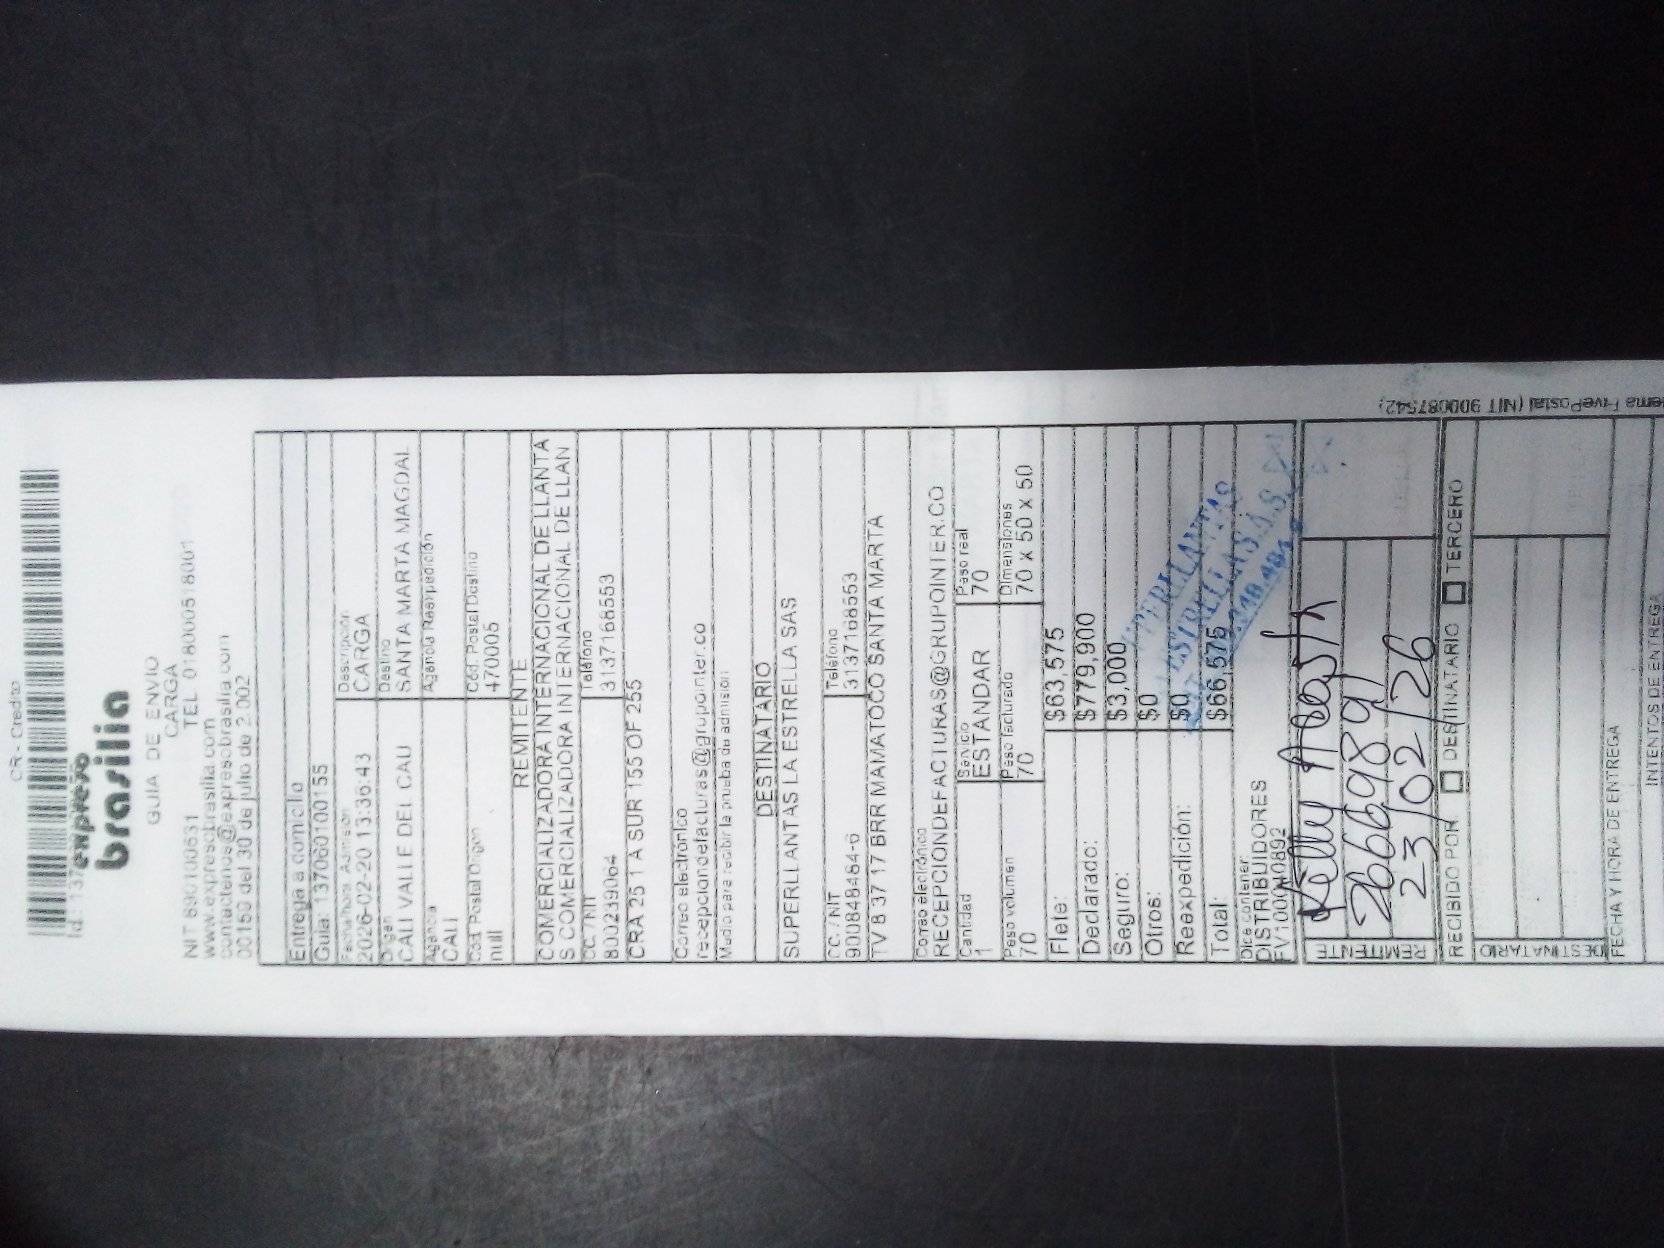 CR - Credito
Id.: 137
expreso
brasilia
GUIA DE ENVIO
CARGA
NIT 890100531 TEL 018000518001
www.expresobrasilia.com
contactenos@expresobrasilia.com
00150 del 30 de julio de 2.002
Entrega a domicilio
Guia: 137060100155
Fecha/hora Admisión Descripción
2026-02-20 13:36:43 CARGA
Origen Destino
CALI VALLE DEL CAU SANTA MARTA MAGDAL
Agencia Agencia Reexpedición
CALI
Cód. Postal Origen Cód. Postal Destino
null 470005
REMITENTE
COMERCIALIZADORA INTERNACIONAL DE LLANTA
S COMERCIALIZADORA INTERNACIONAL DE LLAN
CC./NIT Teléfono
800239064 3137168553
CRA 25 1 A SUR 155 OF 255
Correo electrónico
recepciondefacturas@grupointer.co
Medio para recibir la prueba de admisión
DESTINATARIO
SUPERLLANTAS LA ESTRELLA SAS
CC./NIT Teléfono
900848484-6 3137168553
TV 8 37 17 BRR MAMATOCO SANTA MARTA
Correo electrónico
RECEPCIONDEFACTURAS@GRUPOINTER.CO
Cantidad Servicio Peso real
1 ESTANDAR 70
Peso volumen Peso facturado Dimensiones
70 70 70 x 50 x 50
Flete: $63,575
Declarado: $779,900
Seguro: $3,000
Otros: $0
Reexpedición: $0
Total: $66,575
Dice contener
DISTRIBUIDORES
REMITENTE
Kelly
26669891
23/02/26
RECIBIDO POR DESTINATARIO TERCERO
DESTINATARIO
FECHA Y HORA DE ENTREGA
INTENTOS DE ENTREGA
Postal (NIT 900087542)